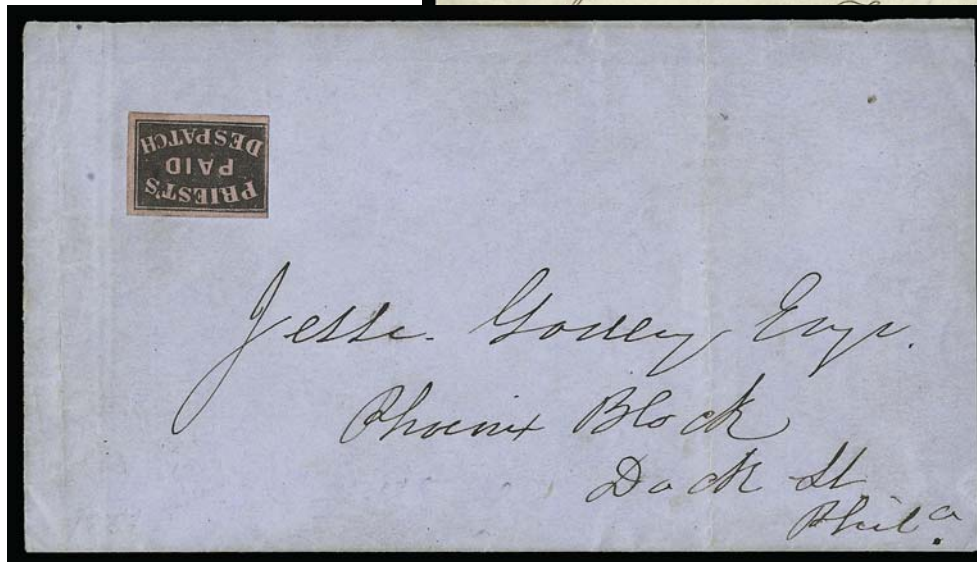 PRIEST'S
PAID
DESPATCH
Jesse Godley Esqr.
Phoenix Block
Dock St
Phila.